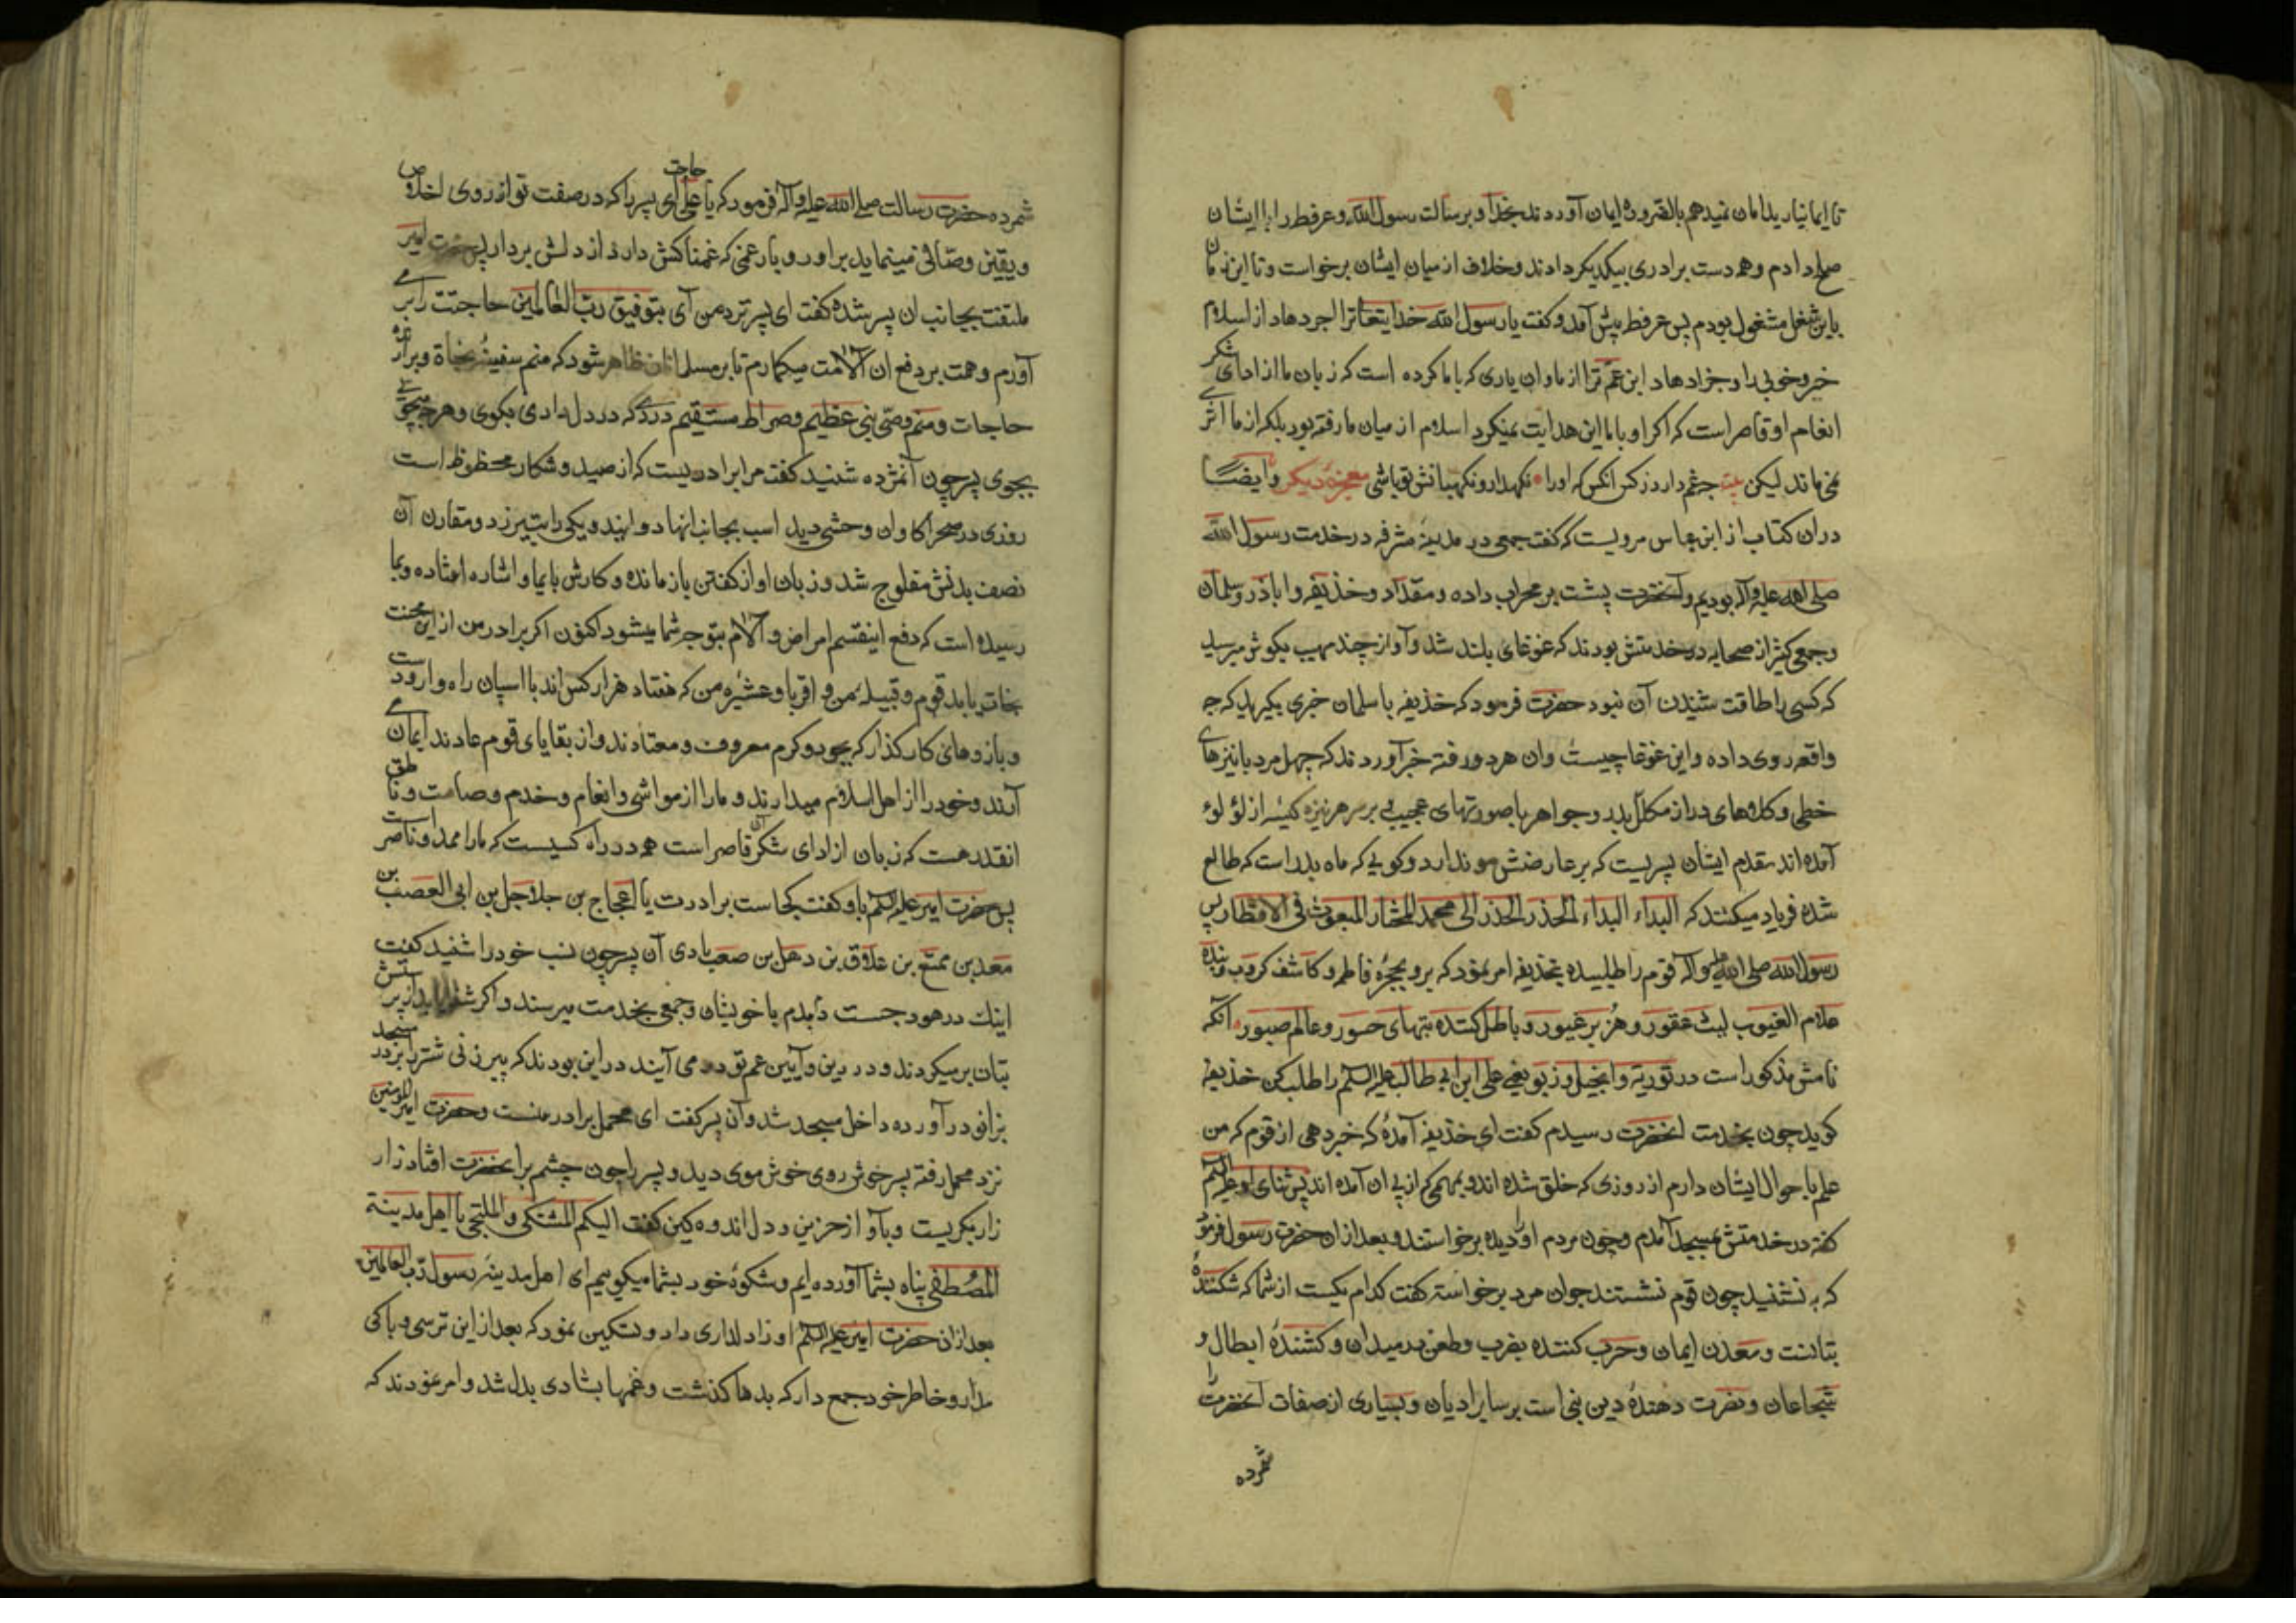 تا ایمان نیارید امان نمیدهم بالضروره ایمان آوردند بخدا و برسالت رسول الله و عرفطه را با ایشان
صلح دادم و همه دست برادری بیکدیگر دادند و خلاف از میان ایشان برخواست و تا این زمان
باین شغل مشغول بودم پس عرفطه پیش آمد و گفت یا رسول الله خدایتعالی ترا اجر دهاد از اسلام
خیر و خوبی را و جزا دهاد ابن عم ترا از ما و ان یاری که با ما کرده است که زبان ما از ادای شکر
انعام او قاصر است که اکر او با ما این هدایت نمیکرد اسلام از میان ما رفته بود بلکه از ما اثری
نمی ماند لیکن بیت چه غم دارد ز کس انکس که او را نکهدار و نکهبانش تو باشی معجزهٔ دیکر و ایضا
دران کتاب از ابن عباس مرویست که گفت جمعی در مدینه مشرفه در خدمت رسول الله
صلی الله علیه و آله بودیم و آنحضرت پشت بر محراب داده و مقداد و حذیفه و اباذر و سلمان
و جمعی کثیر از صحابه در خدمتش بودند که غوغای بلند شد و آواز چند مهیب بکوش میرسید
که کسی را طاقت شنیدن آن نبود حضرت فرمود که حذیفه با سلمان خبری بکیرید که چه
واقعه روی داده و این غوغا چیست وان هر دو رفته خبر آوردند که چهل مرد با نیزهای
خطی و کلاههای دراز مکلل بدر و جواهر با صورتهای عجیب بر سر هر نیزه کیسه از لؤلؤ
آمده اند مقدم ایشان پسریست که بر عارضش مو ندارد و کویی که ماه بدر است که طالع
شده فریاد میکنند که البداء البداء الحذر الحذر الی محمد المختار المبعوث فی الاقطار پس
رسول الله صلی الله علیه و اله قوم را طلبیده بحذیفه امر نمود که برو بحجرهٔ فاطمه و کاشف کروب و بنده
علام الغیوب لیث عقور و هزبر غیور و باطل کننده بتهای حسور و عالم صبور آنکه
نامش مذکور است در توریة و انجیل و زبور یعنی علی ابن ابی طالب علیه السلم را طلب کن حذیفه
کوید چون بخدمت انحضرت رسیدم کفت ای حذیفه آمدهٔ که خبر دهی از قوم که من
علم با حوال ایشان دارم از روزی که خلق شده اند و بمهمی که از پی ان آمده اند پس ثنای او علیه السلم
کفته در خدمتش بمسجد آمدم و چون مردم او را دیده برخواستند و بعد از ان حضرت رسول فرمود
که بنشنید چون قوم نشستند جوان مرد برخواسته کفت کدام یکیست از شما که شکنندهٔ
بتانست و معدن ایمان و حرب کننده بضرب و طعن در میدان و کشندهٔ ابطال و
شجاعان و نصرت دهندهٔ دین نبی است بر سایر ادیان و بسیاری از صفات آنحضرت را
شمرده
شمرده حضرت رسالت صلی الله علیه و آله فرمود که یا علی حاجت ای پسر را که در صفت تو از روی اخلاص
و یقین وصافی مینماید براور و بار غمی که غمناکش دارد از دلش بردار پس حضرت امیر
ملتفت بجانب ان پسر شده کفت ای پسر نزد من آی بتوفیق رب العالمین حاجتت را بر می
آورم و همت بر دفع ان آلامت میکمارم تا بر مسلمانان ظاهر شود که منم سفینهٔ نجاة و برآرندهٔ
حاجات و منم وصی نبی عظیم و صراط مستقیم دردی که در دل داری بکوی و هر چه میجویی
بجوی پسر چون آن مژده شنید کفت مرا برادریست که از صید و شکار محظوظ است
روزی در صحرا کاوان وحشی دید اسب بجانب انها دوانید و یکی را بتیر زد و مقارن آن
نصف بدنش مفلوج شد و زبان او از کفتن باز مانده و کارش بایما و اشاره افتاده و بما
رسیده است که دفع اینقسم امراض و آلام بتوجه شما میشود اکنون اکر برادر من از این محنت
نجات یابد قوم و قبیلهٔ من و اقربا و عشیره من که هفتاد هزار کس اند با اسپان راه وار و دست
و بازوهای کار کذار که بجود و کرم معروف و معتادند و از بقایای قوم عادند ایمان می
آرند و خود را از اهل اسلام میدارند و ما را از مواشی و انعام و خدم و صامت و ناطق
انقدر هست که زبان از ادای شکر آن قاصر است همه در راه کسیست که ما را ممد و ناصر است
پس حضرت امیر علیه السلم باو کفت کجاست برادرت یا العجاج بن جلاجل بن ابی العصب بن
معد بن ممتع بن علاق بن دهل بن صعب یادی آن پسر چون نسب خود را شنید کفت
اینک در هودجست با خویشان و جمعی بخدمت میرسند و اکر شفا یابد از پرستش
بتان بر میکردند و در دین و آیین عم تو در می آیند در این بودند که پیرزنی شتر را بر در مسجد
بزانو در آورده داخل مسجد شد و آن پسر کفت ای محمل برادر منست و حضرت امیر المؤمنین
نزد محمل رفته پسر خوش روی خوش موی دید و پسر را چون چشم بر انحضرت افتاد زار
زار بکریست و بآواز حزین و دل اندوه کین کفت الیکم المشتکی و الملتجی یا اهل مدینة
المصطفی پناه بشما آورده ایم و شکوهٔ خود بشما میکویم ای اهل مدینهٔ رسول رب العالمین
بعد از ان حضرت امیر علیه السلم او را دلداری داد و تسکین نمود که بعد از این ترسی و باکی
مدار و خاطر خود جمع دار که بدها کذشت و غمها بشادی بدل شد و امر نمودند که